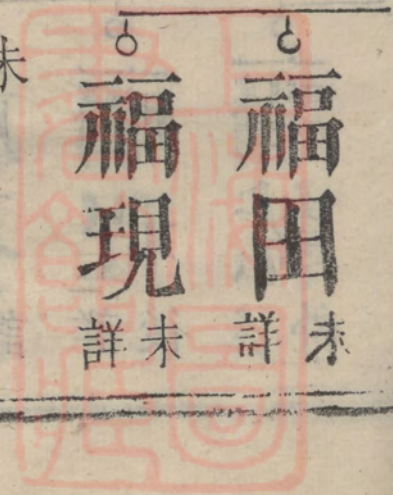 福田 未詳
福現 未詳
未